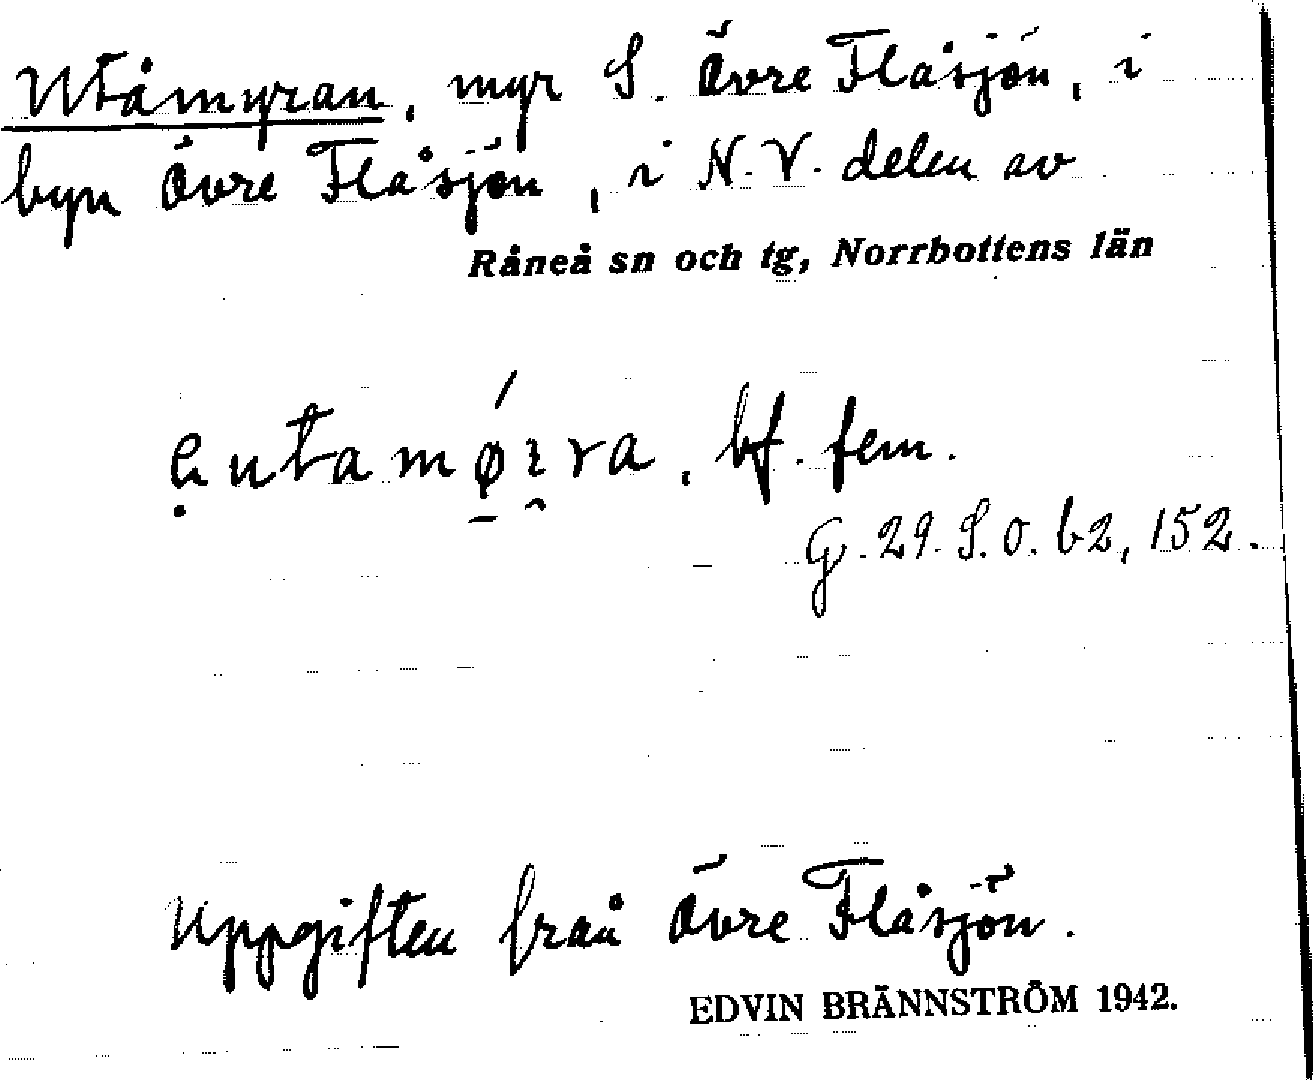 Utåmyran, myr S. Övre Flåsjön, i
byn Övre Flåsjön, i N.V. delen av
Råneå sn och tg, Norrbottens län
bf. fem.
G. 29. S.O. b2, 152.
Uppgiften från Övre Flåsjön.
EDVIN BRÄNNSTRÖM 1942.